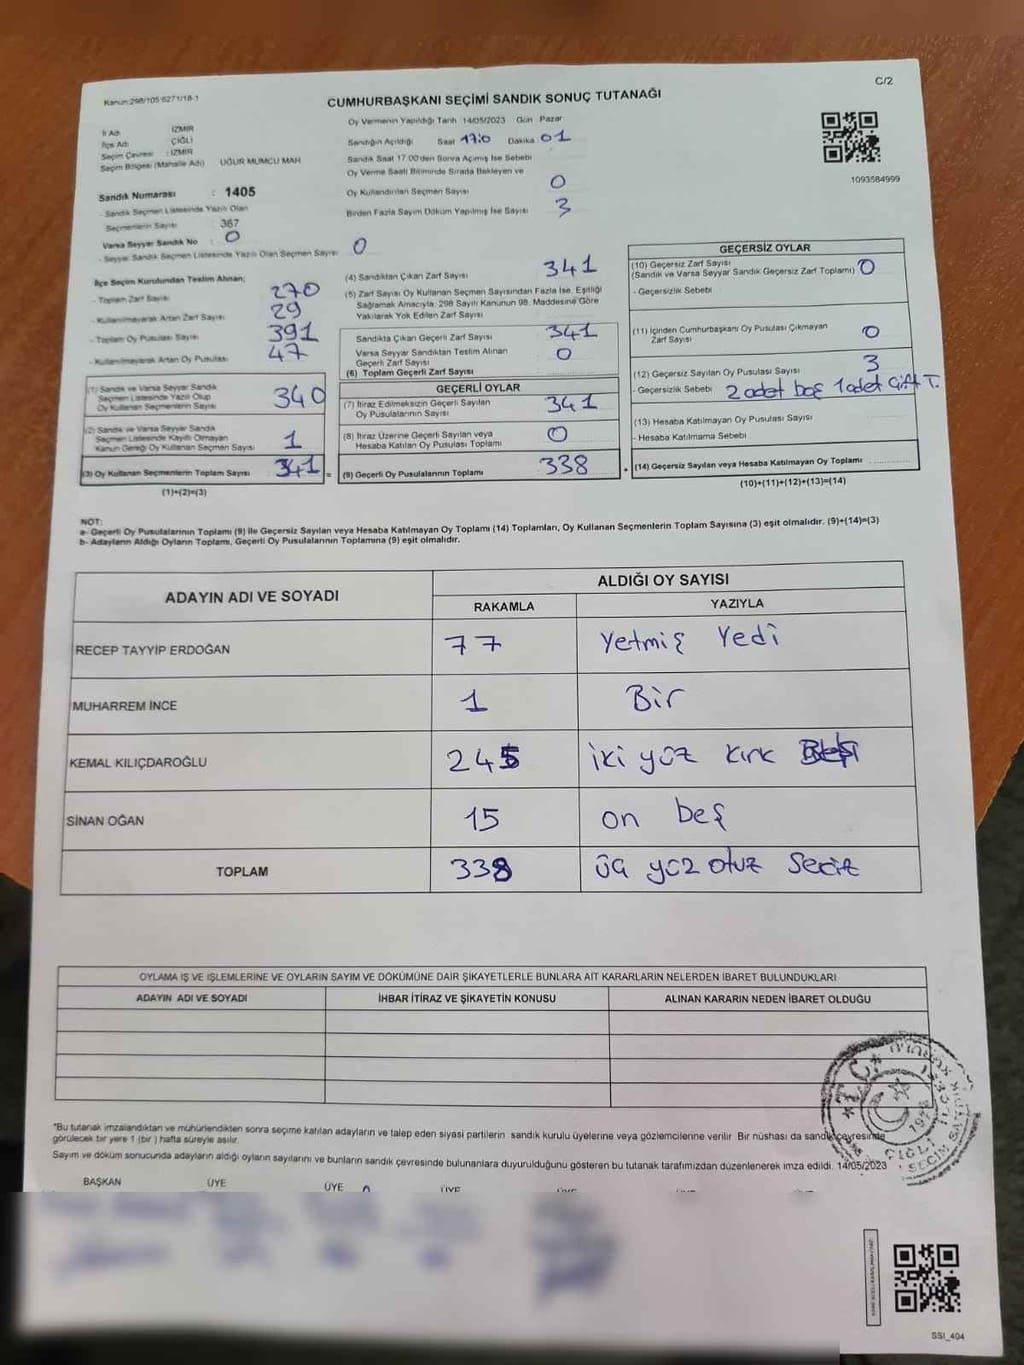 C/2
Kanun:298/105 6271/18-1
CUMHURBAŞKANI SEÇİMİ SANDIK SONUÇ TUTANAĞI
İl Adı İZMİR
İlçe Adı ÇİĞLİ
Seçim Çevresi : İZMİR
Seçim Bölgesi (Mahalle Adı) UĞUR MUMCU MAH
Oy Vermenin Yapıldığı Tarih 14/05/2023 Gün Pazar
Sandığın Açıldığı Saat 17:0 Dakika 01
Sandık Saat 17.00'den Sonra Açımış İse Sebebi
Oy Verme Saati Bitiminde Sırada Bekleyen ve
Oy Kullandırılan Seçmen Sayısı 0
Birden Fazla Sayım Döküm Yapılmış İse Sayısı 3
1093584999
Sandık Numarası : 1405
- Sandık Seçmen Listesinde Yazılı Olan
Seçmenlerin Sayısı : 367
Varsa Seyyar Sandık No : 0
- Seyyar Sandık Seçmen Listesinde Yazılı Olan Seçmen Sayısı 0
İlçe Seçim Kurulundan Teslim Alınan;
- Toplam Zarf Sayısı 270
- Kullanılmayarak Artan Zarf Sayısı 29
- Toplam Oy Pusulası Sayısı 391
- Kullanılmayarak Artan Oy Pusulası 47
(1) Sandık ve Varsa Seyyar Sandık
Seçmen Listesinde Yazılı Olup
Oy Kullanan Seçmenlerin Sayısı 340
(2) Sandık ve Varsa Seyyar Sandık
Seçmen Listesinde Kayıtlı Olmayan
Kanun Gereği Oy Kullanan Seçmen Sayısı 1
(3) Oy Kullanan Seçmenlerin Toplam Sayısı 341 =
(1)+(2)=(3)
(4) Sandıktan Çıkan Zarf Sayısı 341
(5) Zarf Sayısı Oy Kullanan Seçmen Sayısından Fazla İse, Eşitliği
Sağlamak Amacıyla, 298 Sayılı Kanunun 98. Maddesine Göre
Yakılarak Yok Edilen Zarf Sayısı
Sandıkta Çıkan Geçerli Zarf Sayısı 341
Varsa Seyyar Sandıktan Teslim Alınan
Geçerli Zarf Sayısı 0
(6) Toplam Geçerli Zarf Sayısı
GEÇERLİ OYLAR
(7) İtiraz Edilmeksizin Geçerli Sayılan
Oy Pusulalarının Sayısı 341
(8) İtiraz Üzerine Geçerli Sayılan veya
Hesaba Katılan Oy Pusulası Toplamı 0
(9) Geçerli Oy Pusulalarının Toplamı 338 +
GEÇERSİZ OYLAR
(10) Geçersiz Zarf Sayısı
(Sandık ve Varsa Seyyar Sandık Geçersiz Zarf Toplamı) 0
- Geçersizlik Sebebi
(11) İçinden Cumhurbaşkanı Oy Pusulası Çıkmayan
Zarf Sayısı 0
(12) Geçersiz Sayılan Oy Pusulası Sayısı 3
- Geçersizlik Sebebi 2 adet boş 1 adet Çift T.
(13) Hesaba Katılmayan Oy Pusulası Sayısı
- Hesaba Katılmama Sebebi
(14) Geçersiz Sayılan veya Hesaba Katılmayan Oy Toplamı ............
(10)+(11)+(12)+(13)=(14)
NOT:
a- Geçerli Oy Pusulalarının Toplamı (9) ile Geçersiz Sayılan veya Hesaba Katılmayan Oy Toplamı (14) Toplamları, Oy Kullanan Seçmenlerin Toplam Sayısına (3) eşit olmalıdır. (9)+(14)=(3)
b- Adayların Aldığı Oyların Toplamı, Geçerli Oy Pusulalarının Toplamına (9) eşit olmalıdır.
ADAYIN ADI VE SOYADI ALDIĞI OY SAYISI
RAKAMLA YAZIYLA
RECEP TAYYİP ERDOĞAN 77 Yetmiş Yedi
MUHARREM İNCE 1 Bir
KEMAL KILIÇDAROĞLU 245 iki yüz kırk Beş
SİNAN OĞAN 15 on beş
TOPLAM 338 üç yüz otuz Sekiz
OYLAMA İŞ VE İŞLEMLERİNE VE OYLARIN SAYIM VE DÖKÜMÜNE DAİR ŞİKAYETLERLE BUNLARA AİT KARARLARIN NELERDEN İBARET BULUNDUKLARI
ADAYIN ADI VE SOYADI İHBAR İTİRAZ VE ŞİKAYETİN KONUSU ALINAN KARARIN NEDEN İBARET OLDUĞU
*Bu tutanak imzalandıktan ve mühürlendikten sonra seçime katılan adayların ve talep eden siyasi partilerin sandık kurulu üyelerine veya gözlemcilerine verilir Bir nüshası da sandık çevresinde
görülecek bir yere 1 (bir ) hafta süreyle asılır.
Sayım ve döküm sonucunda adayların aldığı oyların sayılarını ve bunların sandık çevresinde bulunanlara duyurulduğunu gösteren bu tutanak tarafımızdan düzenlenerek imza edildi. 14/05/2023
T.C. ÇİĞLİ 1978
BAŞKAN ÜYE ÜYE ÜYE
SSI_404